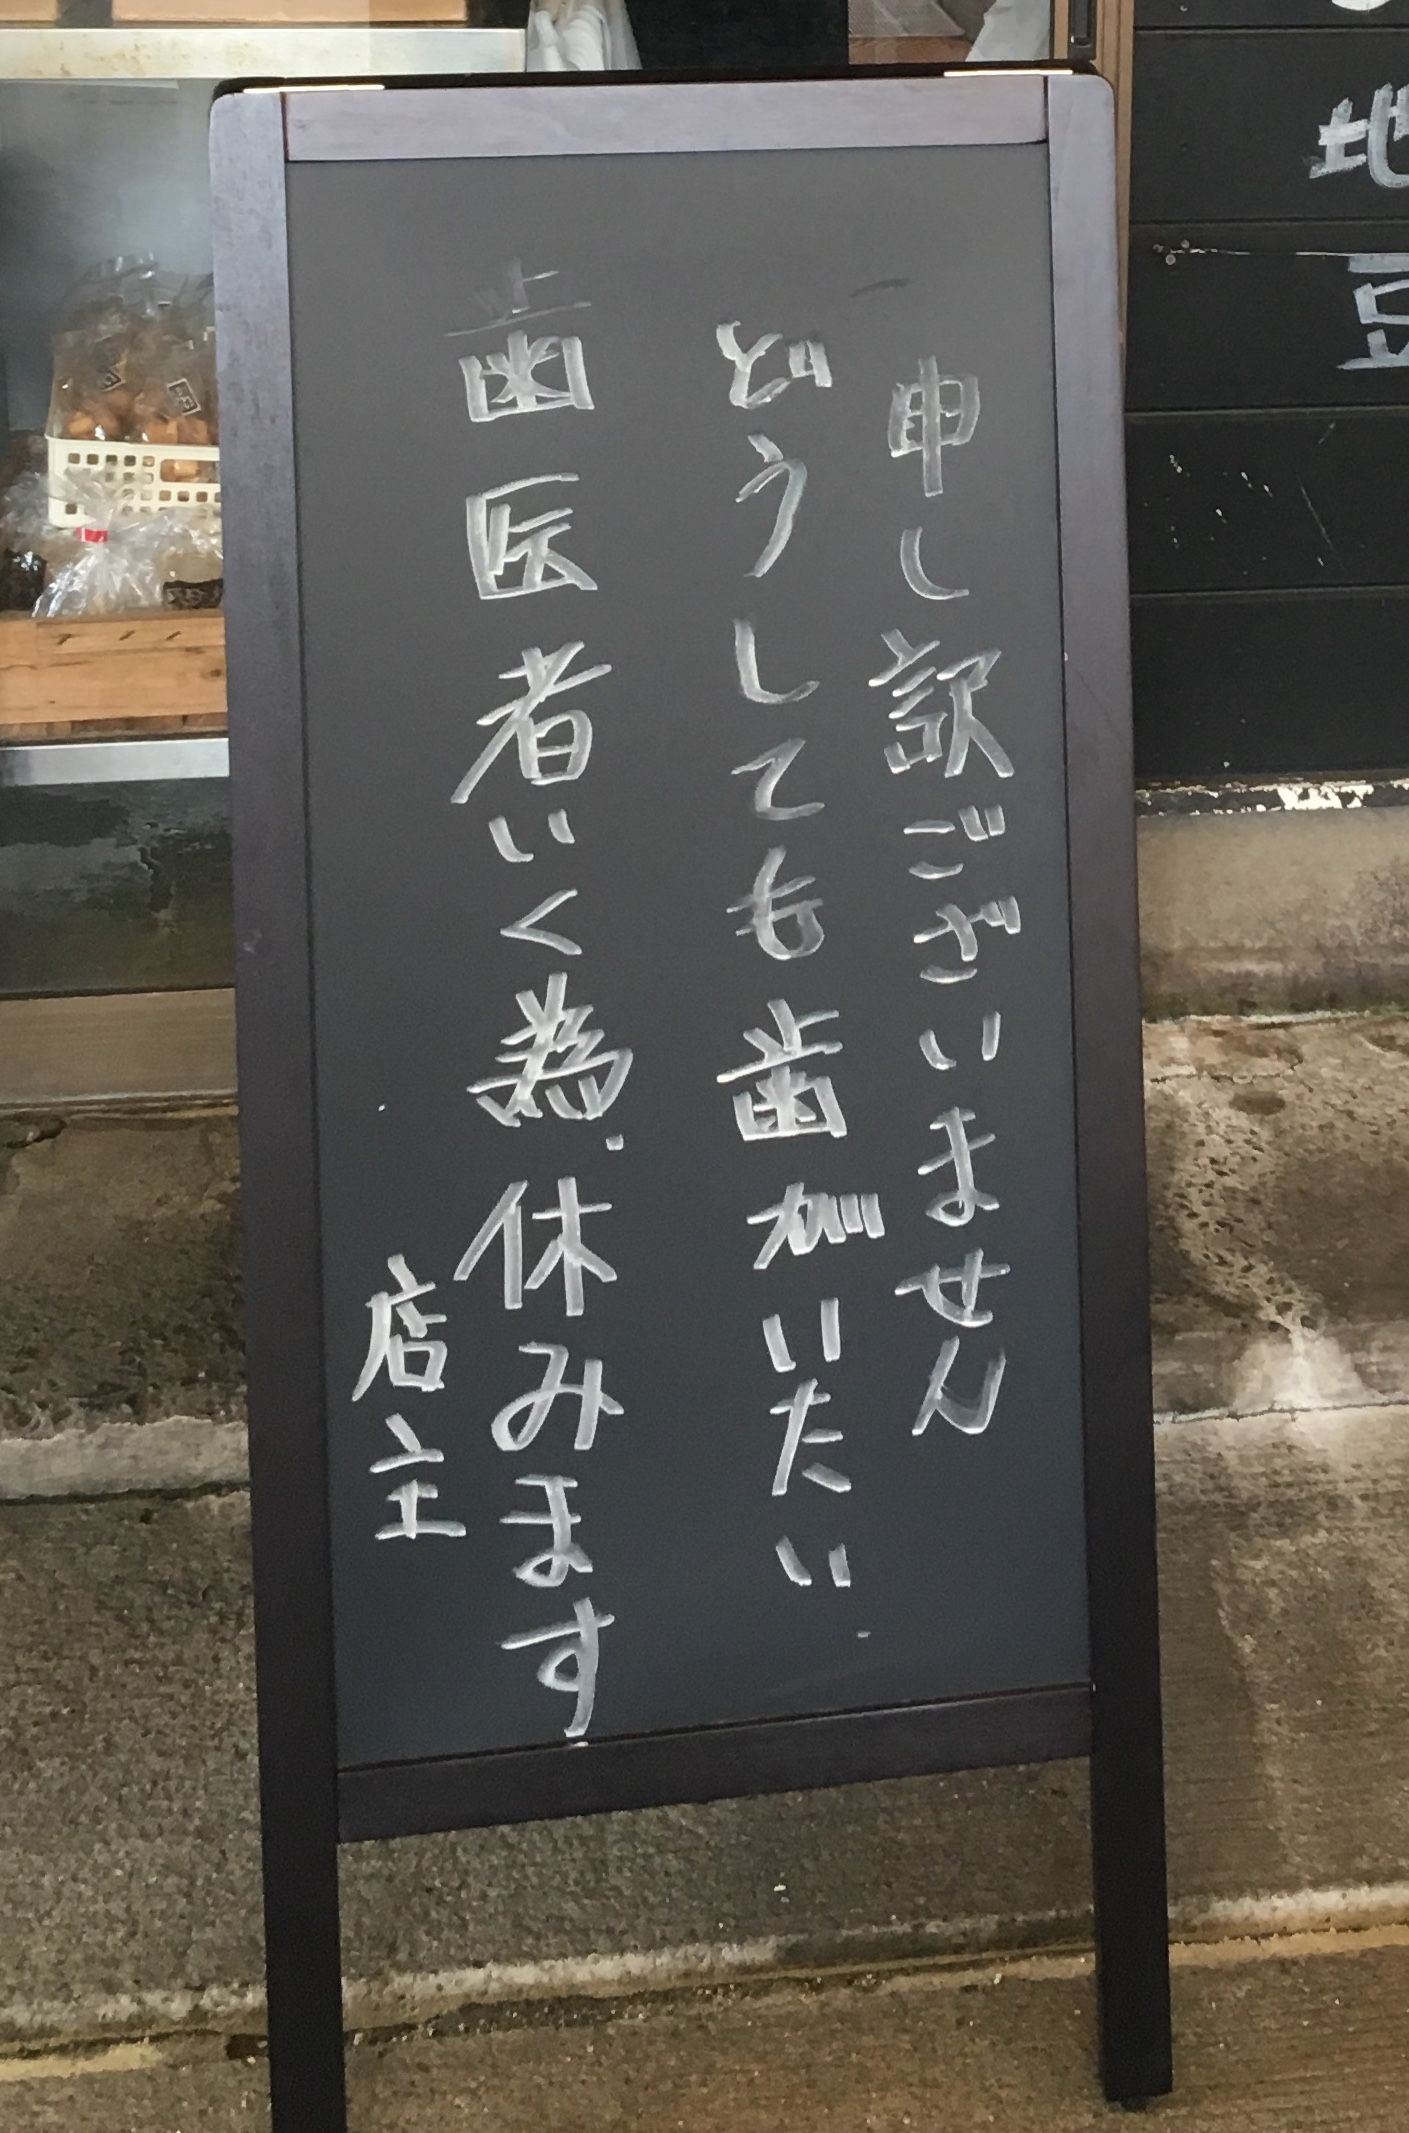 申し訳ございません
どうしても歯がいたい.
歯医者いく為.休みます
店主
地
豆